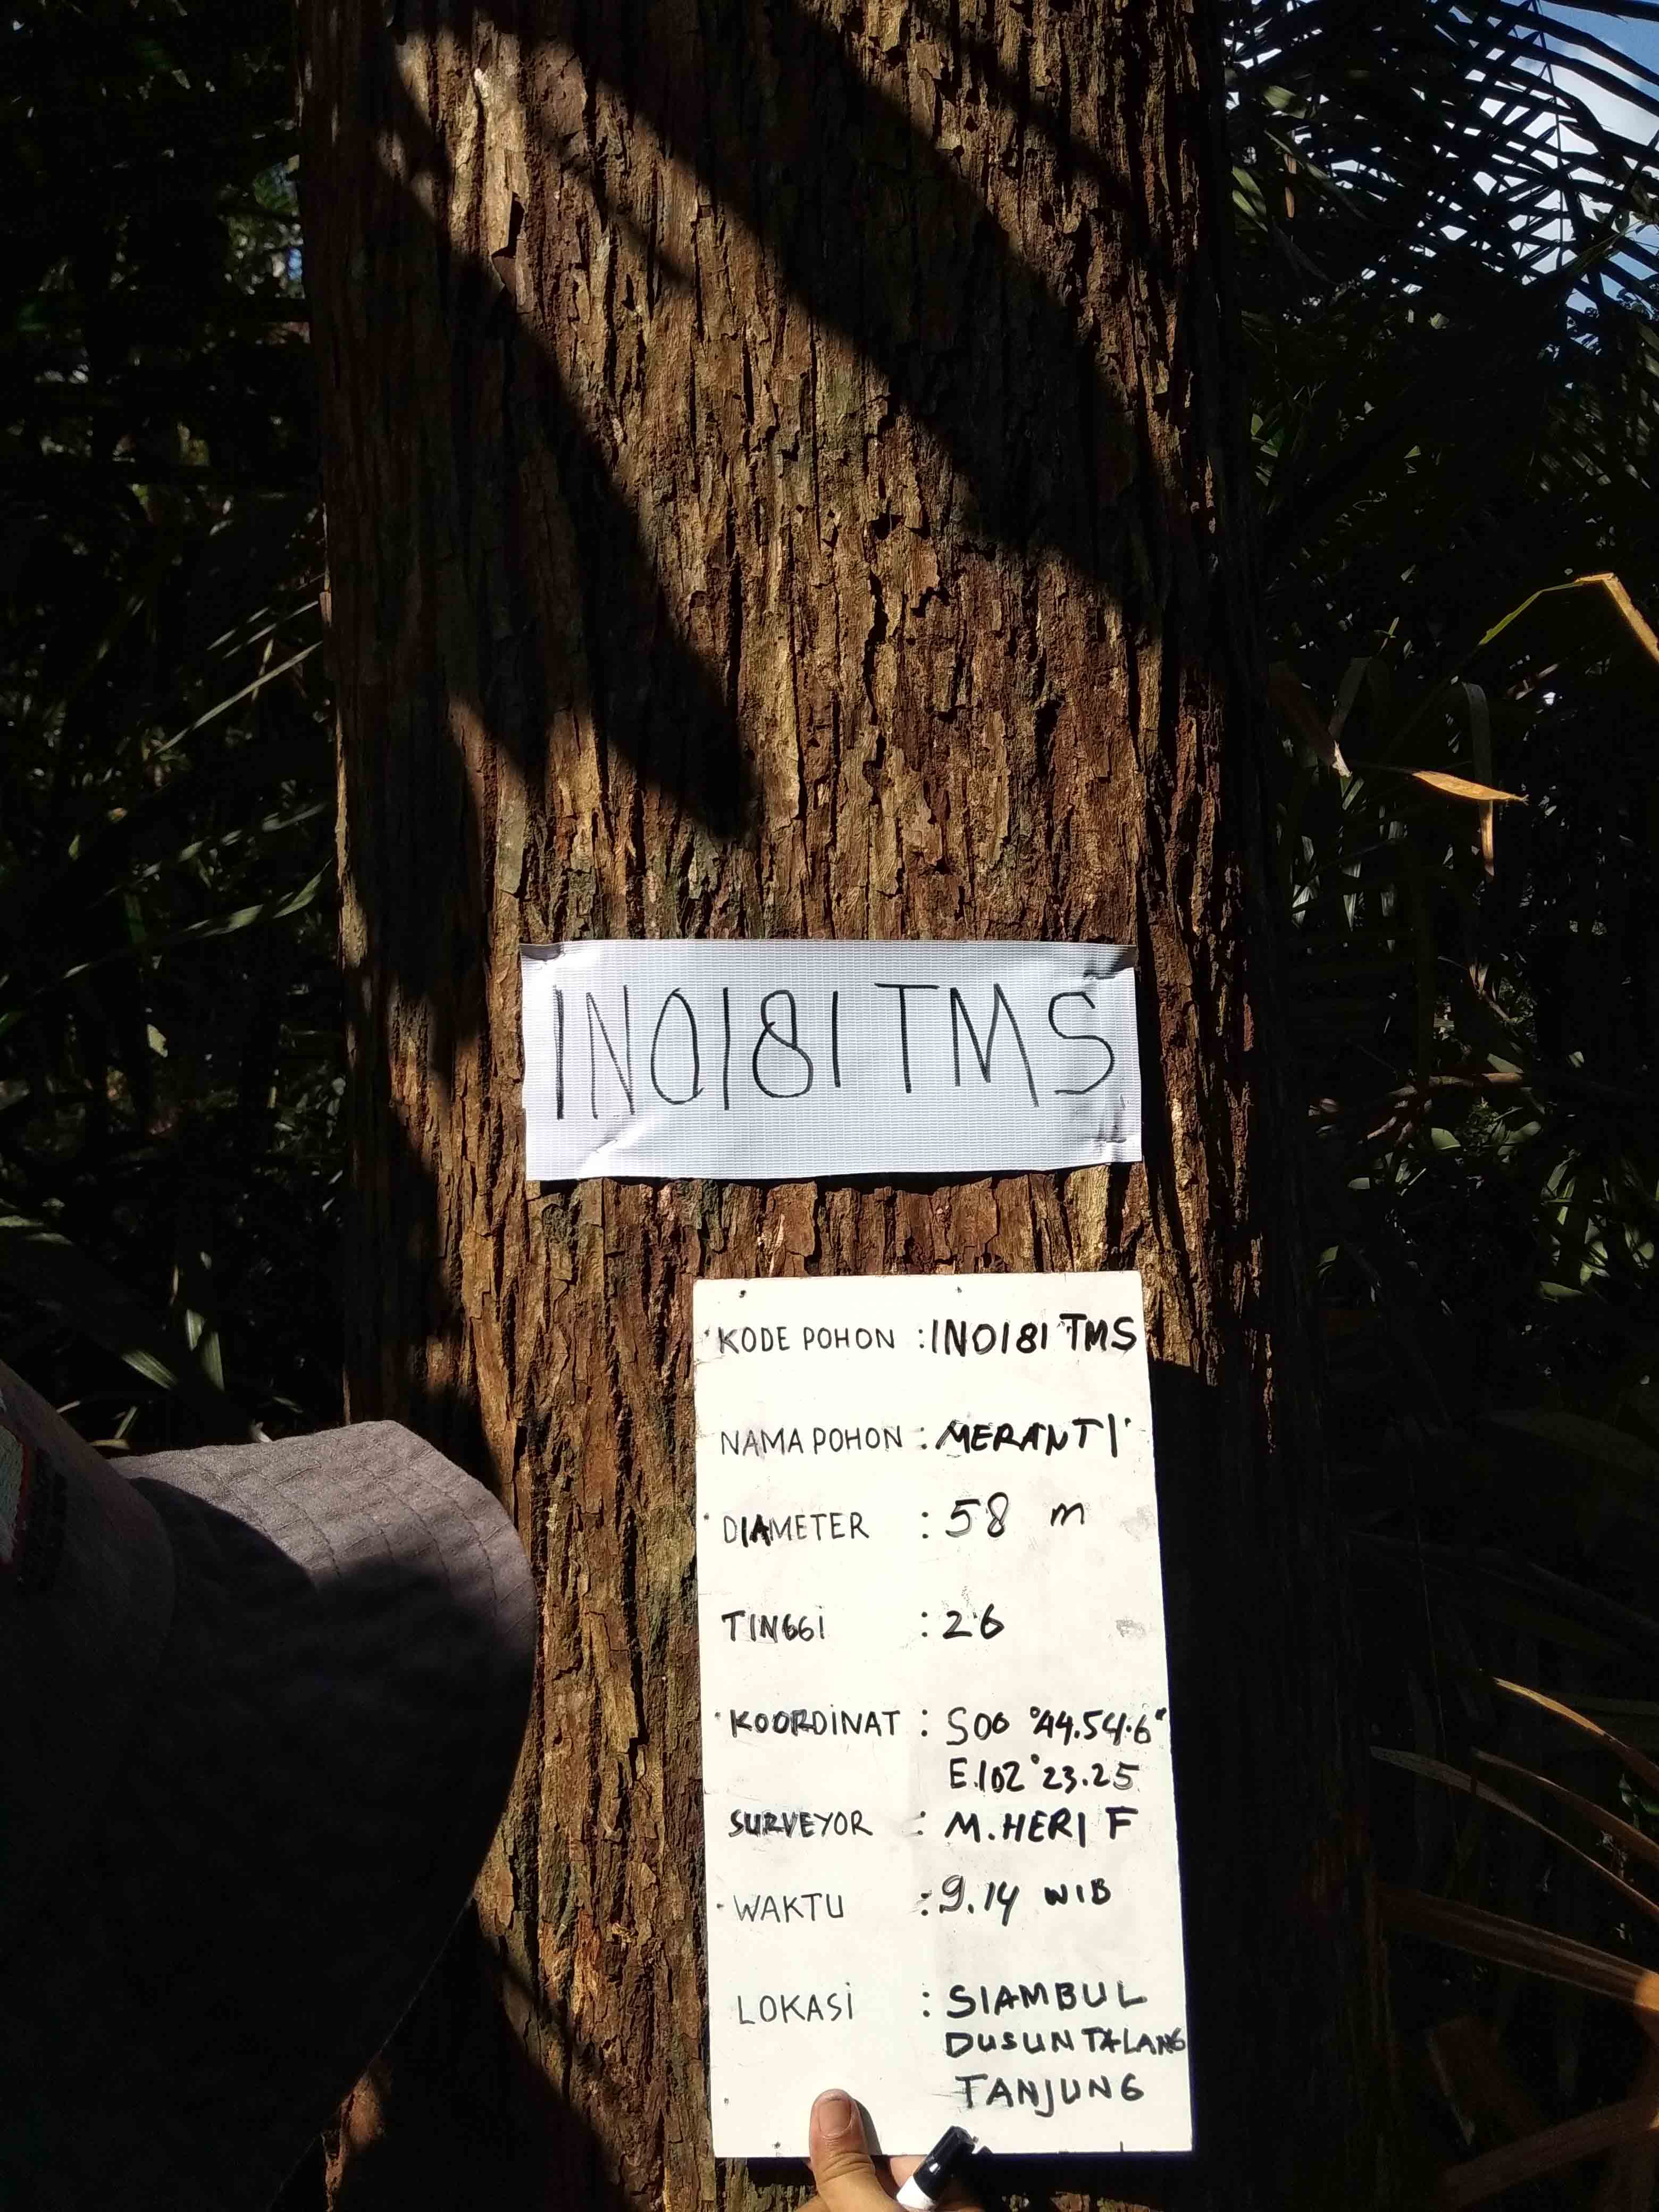 IN0181 TMS
KODE POHON : IN0181 TMS
NAMA POHON : MERANTI
DIAMETER : 58 m
TINGGI : 26
KOORDINAT : S00 °44.54.6"
E.102°23.25
SURVEYOR : M.HERI F
WAKTU : 9.14 WIB
LOKASI : SIAMBUL
DUSUN TALANG
TANJUNG